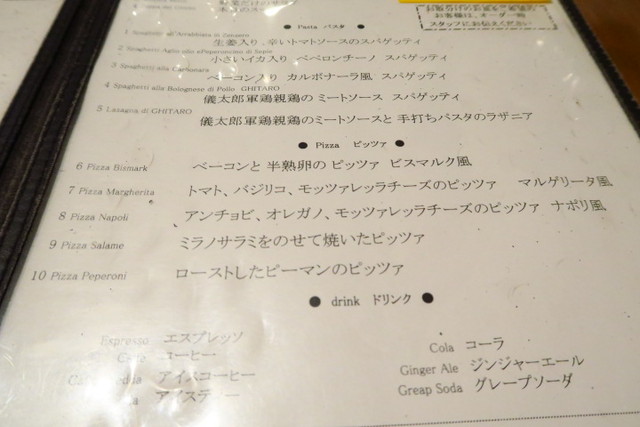 ● Pasta パスタ ●
1 Spaghetti all'Arrabbiata di Zenzero
生姜入り、辛いトマトソースのスパゲッティ
2 Spaghetti Aglio olio ePeperoncino di Sepie
小さいイカ入り ペペロンチーノ スパゲッティ
3 Spaghetti alla Carbonara
ベーコン入り カルボナーラ風 スパゲッティ
4 Spaghetti alla Bolognese di Pollo GHITARO
儀太郎軍鶏親鶏のミートソース スパゲッティ
5 Lasagna di GHITARO
儀太郎軍鶏親鶏のミートソースと 手打ちパスタのラザニア
● Pizza ピッツァ ●
6 Pizza Bismark ベーコンと 半熟卵の ピッツァ ビスマルク風
7 Pizza Margherita トマト、バジリコ、モッツァレッラチーズのピッツァ マルゲリータ風
8 Pizza Napoli アンチョビ、オレガノ、モッツァレッラチーズのピッツァ ナポリ風
9 Pizza Salame ミラノサラミをのせて焼いたピッツァ
10 Pizza Peperoni ローストしたピーマンのピッツァ
● drink ドリンク ●
Espresso エスプレッソ
Cafe コーヒー
アイスコーヒー
アイスティー
Cola コーラ
Ginger Ale ジンジャーエール
Greap Soda グレープソーダ
お客様は、オーダー時
スタッフにお伝えください